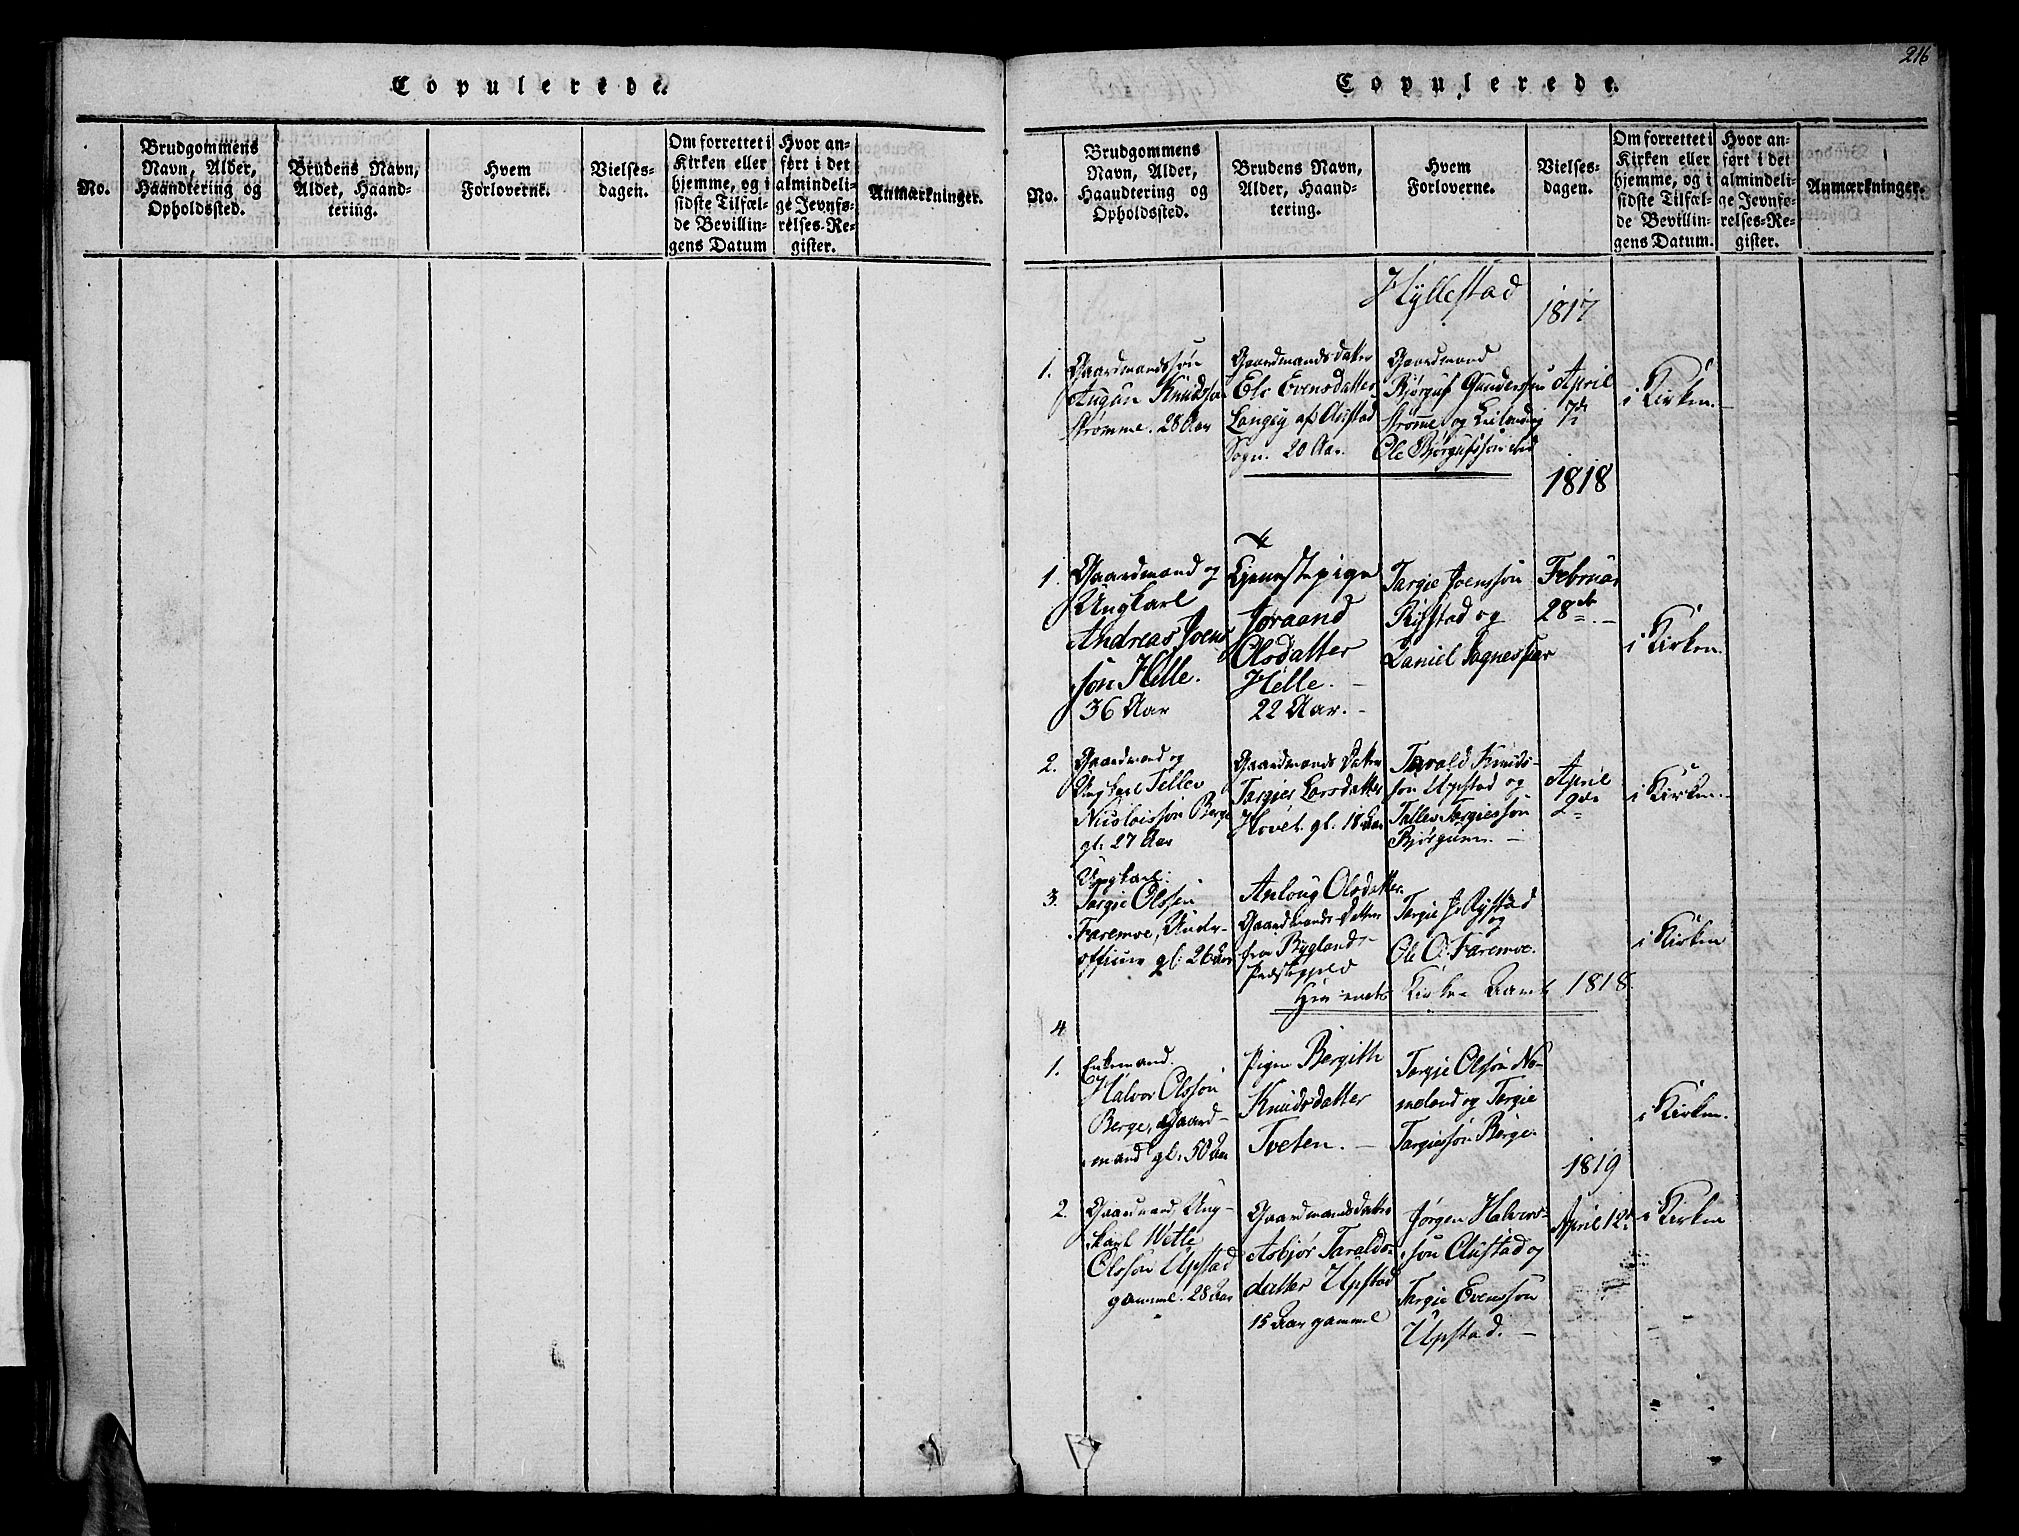 Copulerede.
No.
Brudgommens
Navn, Alder,
Haandtering og
Opholdssted.
Brudens Navn,
Alder, Haand-
tering.
Hvem
Forloverne.
Vielses-
dagen.
Om forrettet i
Kirken eller
hjemme, og i
sidste Tilfæl-
de Bevillin-
gens Datum
Hvor an-
ført i det
almindeli-
ge Jevnfø-
relses-Re-
gister.
Anmærkninger.
216
Copulerede.
No.
Brudgommens
Navn, Alder,
Haandtering og
Opholdssted.
Brudens Navn,
Alder, Haand-
tering.
Hvem
Forloverne.
Vielses-
dagen.
Om forrettet i
Kirken eller
hjemme, og i
sidste Tilfæl-
de Bevillin-
gens Datum.
Hvor an-
ført i det
almindeli-
ge Jevnfø-
relses-Re-
gister.
Anmærkninger.
Hyllestad
1817
1.
Gaardmandssøn
Augun Knudsson
Strømme. 28 Aar
Gaardmandsdatter
Eli Evensdatter
Langey af Austad
Sogn. 20 Aar.
Gaardmand
Bjørguf Gunderssøn
Strømme og
Ole Bjørgufssøn ibid
April
7de
i Kirken.
1818
1.
Gaardmand og
Ungkarl
Andreas Joens
søn Helle.
36 Aar
Tjenestepige
Joraand
Olsdatter
Helle.
22 Aar.
Targie Joenssøn
Rifstad og
Daniel
Februar
28de
i Kirken.
2.
Gaardmand og
Ungkarl Tellev
Nicolaissøn Berge
gl. 27 Aar
Gaardmands Datter
Targier Larsdatter
Hovet. gl. 18 Aar
Tarald Knuds-
søn Upstad og
Tallev Targiessøn
Bjørgum.
April
2de
i Kirken.
3.
Ungkarl:
Targie Olssøn
Faremoe, Under-
officeer gl. 26 Aar
Anloug Olsdatter.
Gaardmands-Datter
fra Bygland-
Præstegjeld
Targie J. Rystad
og
Ole O. Faremoe.
i Kirken
Her endes Kirke Aaret 1818.
4
1.
Enkemand.
Halvor Olssøn
Berge, Gaard-
mand gl. 50 Aar
Pigen Bergith
Knudsdatter
Tveten.
Targie Olssøn No-
meland og Targie
Targiessøn Berge.
i Kirken.
1819
2.
Gaardmand, Ung-
karl Wetle
Olssøn Upstad
gammel. 28 Aar
Gaardmandsdatter
Asbjør Taralds-
datter Upstad
15 Aar gammel
Jørgen Halvors-
søn Austad og
Targie Evenssøn
Upstad.
April 12.
i Kirken